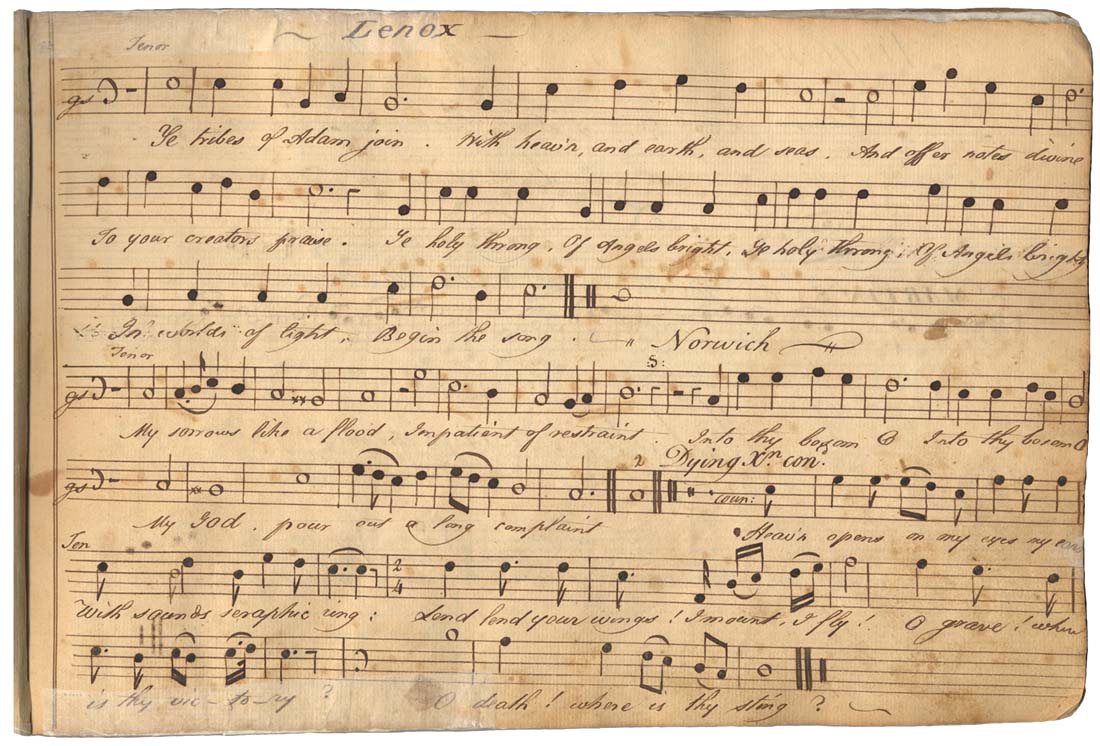 Lenox
Tenor
gs
Ye tribes of Adam join . With heav'n, and earth, and seas . And offer notes divine
To your creators praise . Ye holy throng , Of Angels bright , Ye holy throng , Of Angels bright
In worlds of light , Begin the song .
Norwich
Tenor
:S:
gs
My sorrows like a flood , Impatient of restraint . Into thy bosom O Into thy bosom O
Dying Xn. con.
2
gs
coun:
My God , pour out a long complaint
Heav'n opens on my eyes my ears
Ten
2
4
With sounds seraphic ring : Lend lend your wings ! I mount , I fly ! O grave ! where
is thy vic-to-ry ? O death ! where is thy sting ?